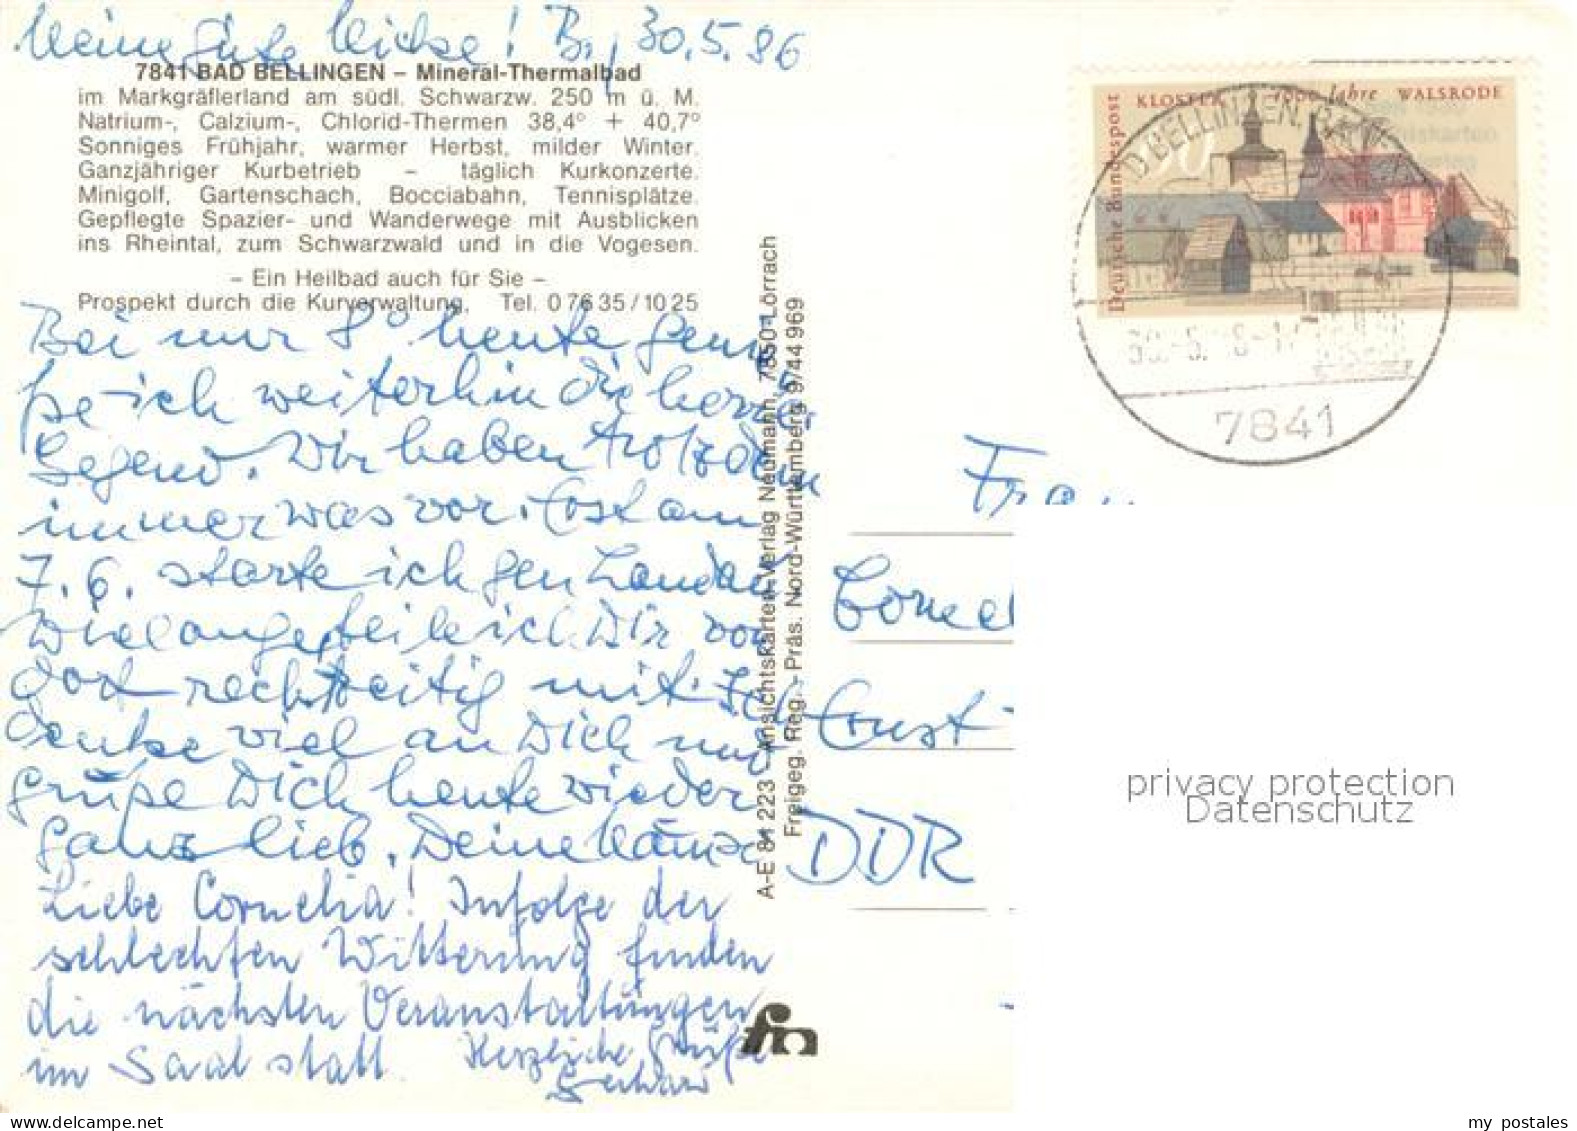 Meine gute Micke! B., 30.5.86
7841 BAD BELLINGEN – Mineral-Thermalbad
im Markgräflerland am südl. Schwarzw. 250 m ü. M.
Natrium-, Calzium-, Chlorid-Thermen 38,4° + 40,7°
Sonniges Frühjahr, warmer Herbst, milder Winter.
Ganzjähriger Kurbetrieb – täglich Kurkonzerte.
Minigolf, Gartenschach, Bocciabahn, Tennisplätze.
Gepflegte Spazier- und Wanderwege mit Ausblicken
ins Rheintal, zum Schwarzwald und in die Vogesen.
– Ein Heilbad auch für Sie –
Prospekt durch die Kurverwaltung, Tel. 0 76 35 / 10 25
Bei nur 8° heute
ich weiterhin die
Gegend. Wir haben trotzdem
immer was vor. Erst am
7.6. starte ich gen Landau
Wie lange teile ich Dir von
dort rechtzeitig mit. Ich
denke viel an Dich und
grüße Dich heute wieder
ganz lieb. Deine
Liebe Cornelia! Infolge der
schlechten Witterung finden
die nächsten Veranstaltungen
im Saal statt. Herzliche Grüße
Gerhard
A-E 81 223 Ansichtskarten-Verlag Neumann, 7850 Lörrach
Freigeg. Reg.-Präs. Nord-Württemberg 9/44 969
fm
KLOSTER 1000 Jahre WALSRODE
Deutsche Bundespost
BELLINGEN, BADEN
7841
Frau
Cornel
Ernst
DDR
privacy protection
Datenschutz
my postales